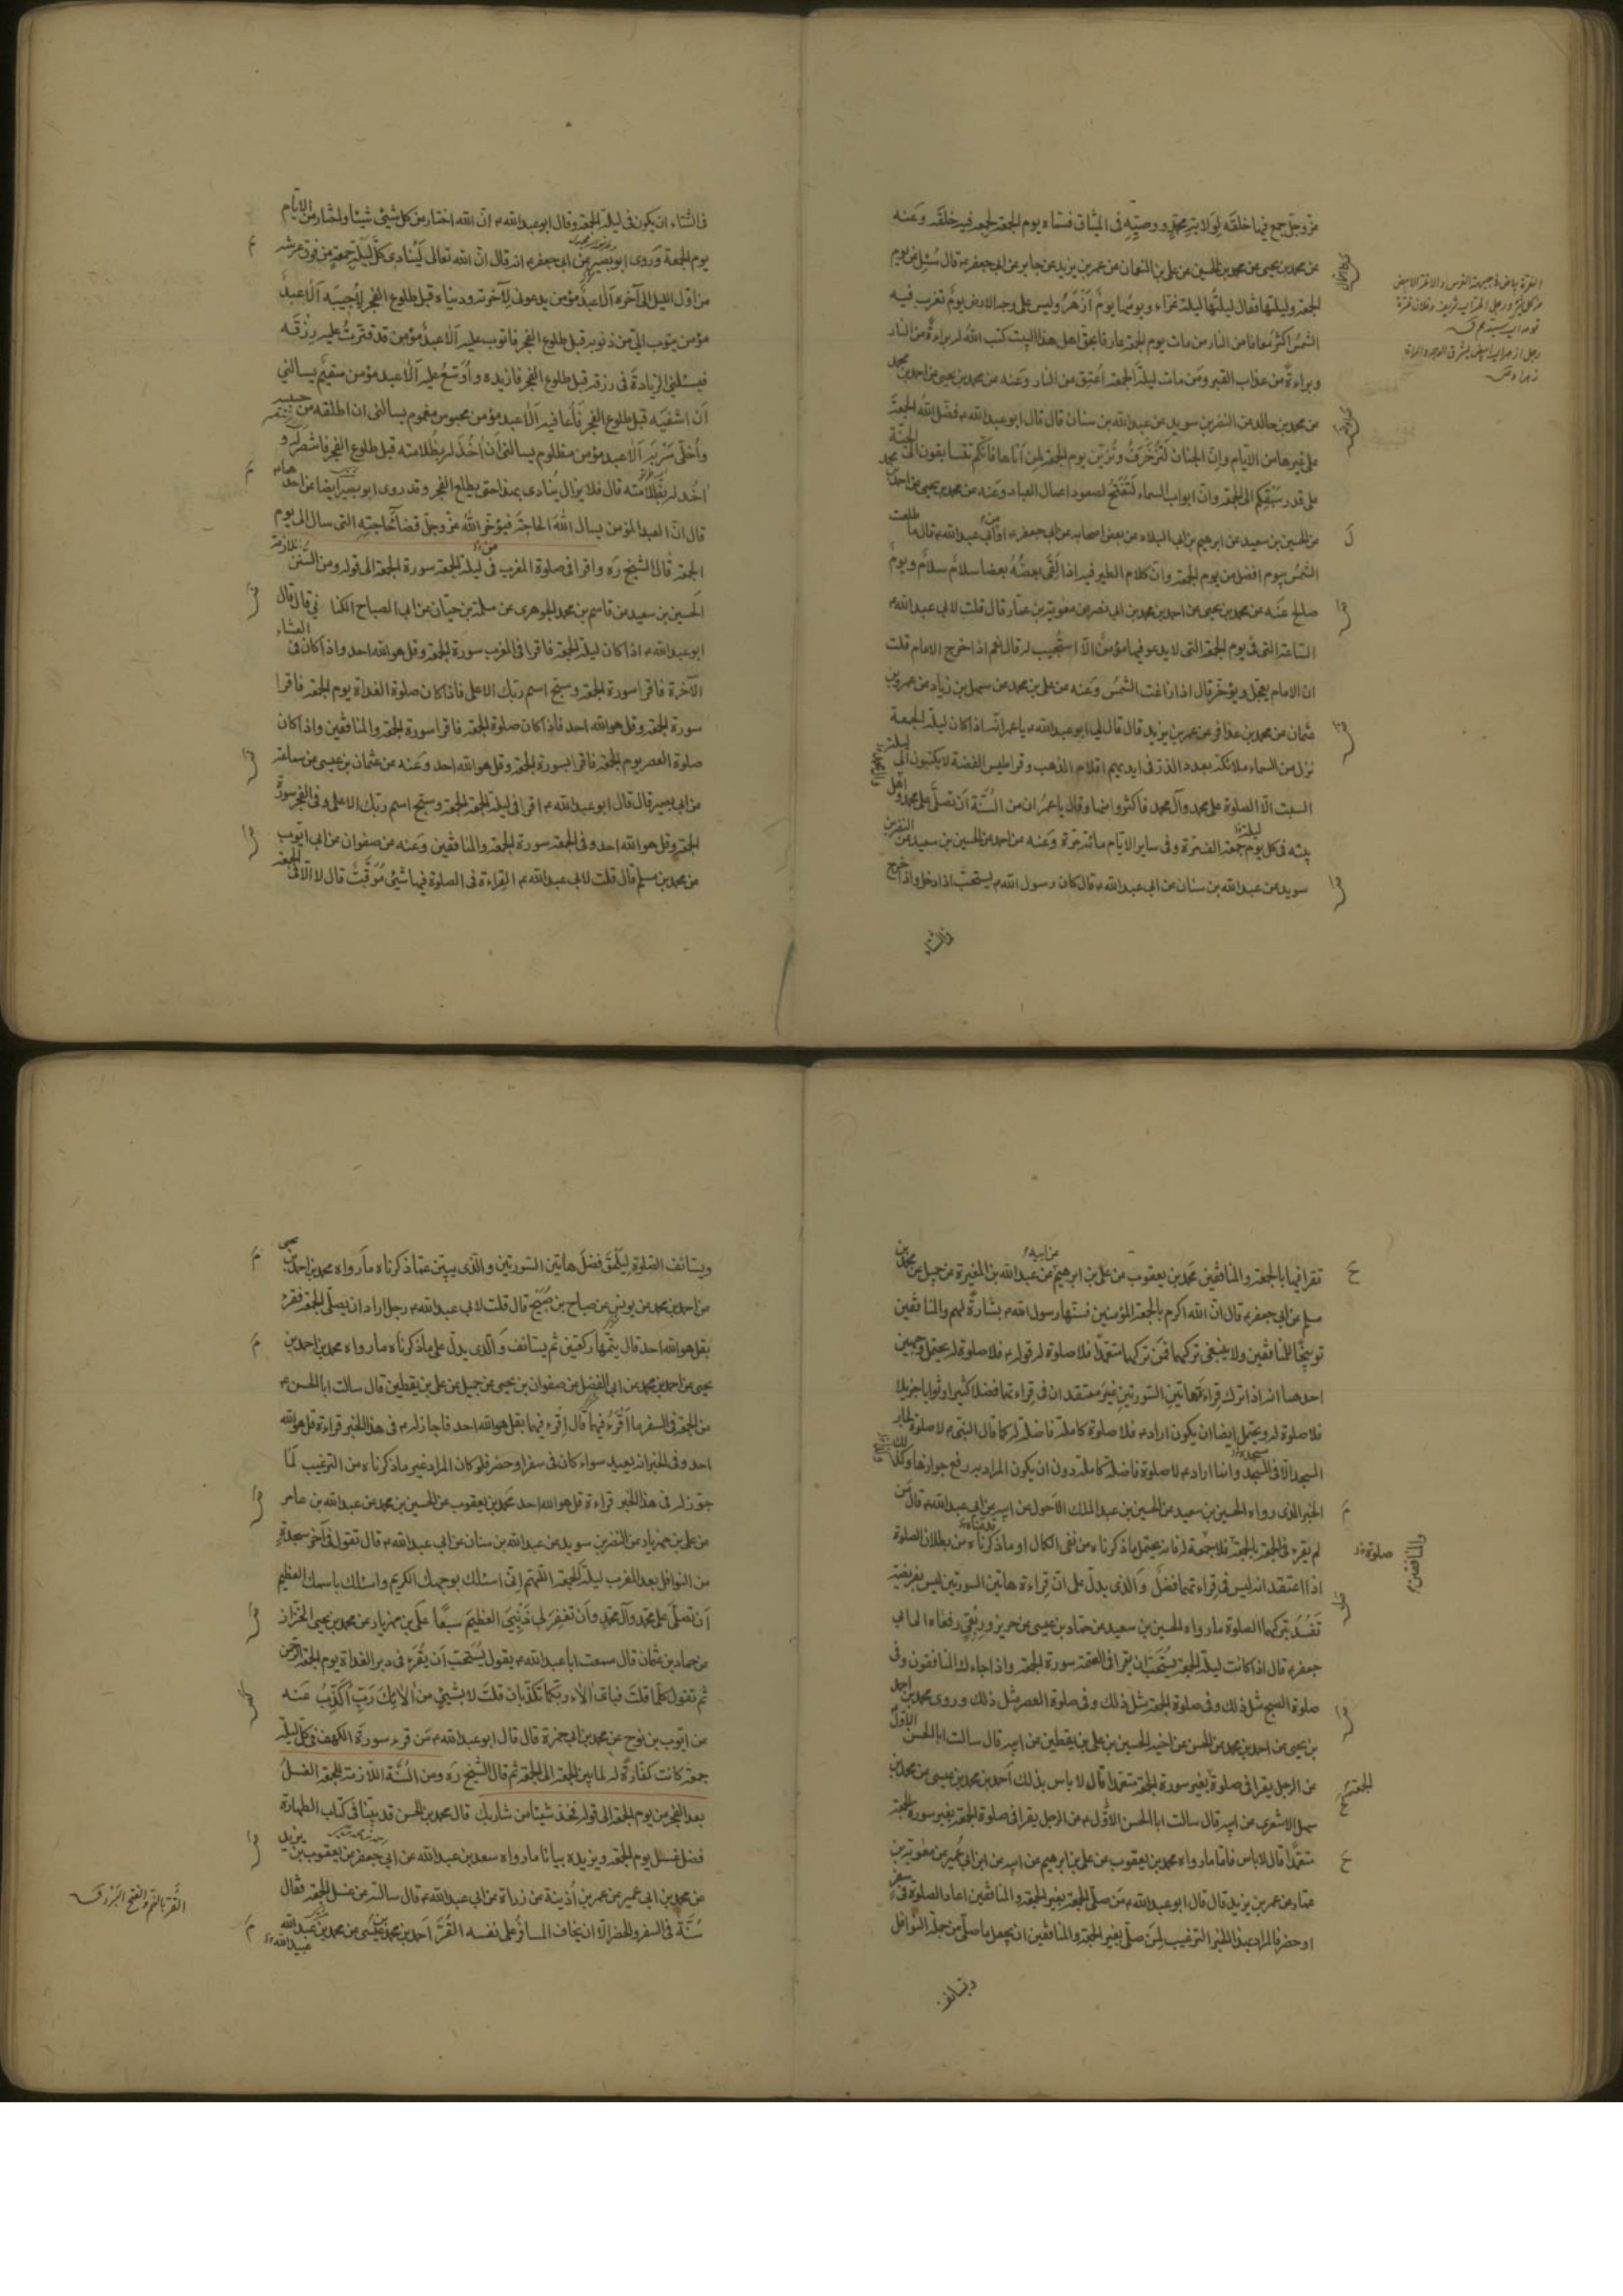 عزوجل جمع فيها خلقه لولاية محمد ووصيه في الميثاق فسماه يوم الجمعة لجمعه فيه خلقه وعنه
عن محمد بن يحيى عن محمد بن الحسين عن علي بن النعمان عن عمر بن يزيد عن جابر عن ابي جعفر ع قال سئل عن يوم
الجمعة وليلتها فقال ليلتها ليلة غراء ويومها يوم ازهر وليس على وجه الارض يوم تغرب فيه
الشمس اكثر معافا من النار من مات يوم الجمعة عارفا بحق اهل هذا البيت كتب الله له براءة من النار
وبراءة من عذاب القبر ومن مات ليلة الجمعة اعتق من النار وعنه عن محمد بن يحيى عن احمد بن محمد
عن محمد بن خالد عن النضر بن سويد عن عبد الله بن سنان قال قال ابو عبد الله ع فضل الله الجمعة
على غيرها من الايام وان الجنان لتزخرف وتزين يوم الجمعة لمن اتاها فانكم تتسابقون الى الجنة
على قدر سبقكم الى الجمعة وان ابواب السماء لتفتح لصعود اعمال العباد وعنه عن محمد بن يحيى عن احمد بن محمد
عن الحسين بن سعيد عن ابرهيم بن ابي البلاد عن بعض اصحابه عن ابي جعفر ع او ابي عبد الله ع قال ما طلعت
الشمس بيوم افضل من يوم الجمعة وان كلام الطير فيه اذا لقى بعضه بعضا سلام سلام ويوم
صالح عنه عن محمد بن يحيى عن احمد بن محمد بن ابي نصر عن معوية بن عمار قال قلت لابي عبد الله ع
الساعة التي في يوم الجمعة التي لا يدعو فيها مؤمن الا استجيب له قال نعم اذا خرج الامام قلت
ان الامام يعجل ويؤخر قال اذا زاغت الشمس وعنه عن علي بن محمد عن سهل بن زياد عن عمرو بن
عثمان عن محمد بن عذافر عن عمر بن يزيد قال قال لي ابو عبد الله ع يا عمر انه اذا كان ليلة الجمعة
نزل من السماء ملائكة بعدد الذر في ايديهم اقلام الذهب وقراطيس الفضة لا يكتبون الى ليلة
السبت الا الصلوة على محمد وآل محمد فاكثروا منها وقال يا عمر ان من السنة ان تصلى على محمد واهل
بيته في كل يوم جمعة الف مرة وفي ساير الايام مائة مرة وعنه عن احمد عن الحسين بن سعيد عن النضر بن
سويد عن عبد الله بن سنان عن ابي عبد الله ع قال كان رسول الله ص يستحب اذا دخل واذا خرج
في الشتاء
في الشتاء ان يكون في ليلة الجمعة وقال ابو عبد الله ع ان الله اختار من كل شيئ شيئا واختار من الايام
يوم الجمعة وروى ابو بصير عن ابي جعفر ع انه قال ان الله تعالى لينادي كل ليلة جمعة من فوق عرشه
من اول الليل الى آخره الا عبد مؤمن يدعوني لآخرته ودنياه قبل طلوع الفجر لاجيبه الا عبد
مؤمن يتوب الي من ذنوبه قبل طلوع الفجر فاتوب عليه الا عبد مؤمن قد قترت عليه رزقه
فيسئلني الزيادة في رزقه قبل طلوع الفجر فازيده واوسع عليه الا عبد مؤمن سقيم يسالني
ان اشفيه قبل طلوع الفجر فاعافيه الا عبد مؤمن محبوس مغموم يسالني ان اطلقه من حبسه
واخلى سربه الا عبد مؤمن مظلوم يسالني ان آخذ له بظلامته قبل طلوع الفجر فانتصر له و
آخذ له بظلامته قال فلا يزال ينادي بهذا حتى يطلع الفجر وقد روى ابو بصير ايضا عن احدهما ع
قال ان العبد المؤمن يسال الله الحاجة فيؤخر الله عزوجل قضاء حاجته التي سال الى يوم
الجمعة قال الشيخ ره واقرا في صلوة المغرب في ليلة الجمعة سورة الجمعة الى قوله ومن السنن اللازمة
الحسين بن سعيد عن قاسم بن محمد الجوهري عن سلمة بن حيان عن ابي الصباح الكناني قال قال
ابو عبد الله ع اذا كان ليلة الجمعة فاقرا في المغرب سورة الجمعة وقل هو الله احد واذا كان في العشاء
الآخرة فاقرا سورة الجمعة وسبح اسم ربك الاعلى فاذا كان صلوة الغداة يوم الجمعة فاقرا
سورة الجمعة وقل هو الله احد فاذا كان صلوة الجمعة فاقرا سورة الجمعة والمنافقين واذا كان
صلوة العصر يوم الجمعة فاقرا بسورة الجمعة وقل هو الله احد وعنه عن عثمان بن عيسى عن سماعة
عن ابي بصير قال قال ابو عبد الله ع اقرا في ليلة الجمعة الجمعة وسبح اسم ربك الاعلى وفي الفجر سورة
الجمعة وقل هو الله احد وفي الجمعة سورة الجمعة والمنافقين وعنه عن صفوان عن ابي ايوب
عن محمد بن مسلم قال قلت لابي عبد الله ع القراءة في الصلوة فيها شيئ موقت قال لا الا في الجمعة
تقرا فيها بالجمعة والمنافقين محمد بن يعقوب عن علي بن ابرهيم عن ابيه عن عبد الله بن المغيرة عن جميل عن محمد بن
مسلم عن ابي جعفر ع قال ان الله اكرم بالجمعة المؤمنين فسنها رسول الله ص بشارة لهم والمنافقين
توبيخا للمنافقين ولا ينبغي تركهما فمن تركهما متعمدا فلا صلوة له قوله ع فلا صلوة له يحتمل وجهين
احدهما انه اذا ترك قراءة هاتين السورتين غير معتقد ان في قراءتهما فضلا كثيرا وثوابا جزيلا
فلا صلوة له ويحتمل ايضا ان يكون اراد ع فلا صلوة كاملة فاضلة له كما قال النبي ص لا صلوة لجار
المسجد الا في المسجد وانما اراد ع لا صلوة فاضلة كاملة دون ان يكون المراد به رفع جوازها وكذلك
الخبر الذي رواه الحسين بن سعيد عن الحسين بن عبد الملك الاحول عن ابيه عن ابي عبد الله ع قال من
لم يقرء في الجمعة بالجمعة فلا جمعة له فانه يحتمل ما ذكرناه من نفى الكمال او ما ذكرناه من بطلان الصلوة
اذا اعتقد انه ليس في قراءتهما فضل والذي يدل على ان قراءة هاتين السورتين ليس بفريضة
تفسد بتركهما الصلوة ما رواه الحسين بن سعيد عن حماد بن عيسى عن حريز وربعي رفعاه الى ابي
جعفر ع قال اذا كانت ليلة الجمعة يستحب ان يقرا في العتمة سورة الجمعة واذا جاءك المنافقون وفي
صلوة الصبح مثل ذلك وفي صلوة الجمعة مثل ذلك وفي صلوة العصر مثل ذلك وروى محمد بن احمد
بن يحيى عن احمد بن محمد عن الحسن عن اخيه الحسين بن علي بن يقطين عن ابيه قال سالت ابا الحسن الاول
عن الرجل يقرا في صلوة بغير سورة الجمعة متعمدا قال لا باس بذلك احمد بن محمد بن عيسى عن محمد بن
سهل الاشعري عن ابيه قال سالت ابا الحسن الاول ع عن الرجل يقرا في صلوة الجمعة بغير سورة الجمعة
متعمدا قال لا باس فاما ما رواه محمد بن يعقوب عن علي بن ابرهيم عن ابيه عن ابن ابي عمير عن معوية بن
عمار عن عمر بن يزيد قال قال ابو عبد الله ع من صلى الجمعة بغير الجمعة والمنافقين اعاد الصلوة في سفر
او حضر فالمراد بهذا الخبر الترغيب لمن صلى بغير الجمعة والمنافقين ان يجعل ما صلى من جملة النوافل
ويستانف
ويستانف الصلوة ليلحق فضل هاتين السورتين والذي يبين عما ذكرناه ما رواه محمد بن احمد بن يحيى
عن احمد بن محمد عن يونس عن صباح بن صبيح قال قلت لابي عبد الله ع رجل اراد ان يصلى الجمعة فقرء
بقل هو الله احد قال يتمها ركعتين ثم يستانف والذي يدل على ما ذكرناه ما رواه محمد بن احمد بن
يحيى عن احمد بن محمد عن ابي الفضل عن صفوان بن يحيى عن جميل عن علي بن يقطين قال سالت ابا الحسن ع
عن الجمعة في السفر ما اقرء فيهما قال اقرء فيهما بقل هو الله احد فاجاز له ع في هذا الخبر قراءة قل هو الله
احد وفي الخبر انه يعيد سواء كان في سفر او حضر فلو كان المراد غير ما ذكرناه من الترغيب لما
جوز له في هذا الخبر قراءة قل هو الله احد محمد بن يعقوب عن الحسين بن محمد عن عبد الله بن عامر
عن علي بن مهزيار عن النضر بن سويد عن عبد الله بن سنان عن ابي عبد الله ع قال تقول في آخر سجدة
من النوافل بعد المغرب ليلة الجمعة اللهم اني اسئلك بوجهك الكريم واسئلك باسمك العظيم
ان تصلى على محمد وآل محمد وان تغفر لي ذنبي العظيم سبعا علي بن مهزيار عن محمد بن يحيى الخزاز
عن حماد بن عثمان قال سمعت ابا عبد الله ع يقول يستحب ان يقرء في دبر الغداة يوم الجمعة الرحمن
ثم تقول كلما قلت فباي آلاء ربكما تكذبان قلت لا بشيئ من الائك رب اكذب عنه
عن ايوب بن نوح عن محمد بن ابي حمزة قال قال ابو عبد الله ع من قرء سورة الكهف في كل ليلة
جمعة كانت كفارة له لما بين الجمعة الى الجمعة ثم قال الشيخ ره ومن السنة اللازمة للجمعة الغسل
بعد الفجر من يوم الجمعة الى قوله تخذ شيئا من شاربك قال محمد بن الحسن قد بينا في كتاب الطهارة
فضل غسل يوم الجمعة ويزيده بيانا ما رواه سعد بن عبد الله عن ابي جعفر عن يعقوب بن يزيد
عن محمد بن ابي عمير عن عمر بن اذينة عن زرارة عن ابي عبد الله ع قال سالته عن غسل الجمعة فقال
سنة في السفر والحضر الا ان يخاف المسافر على نفسه القر احمد بن محمد بن عيسى عن محمد بن عبد الله
القر بالضم والفتح البرد ق